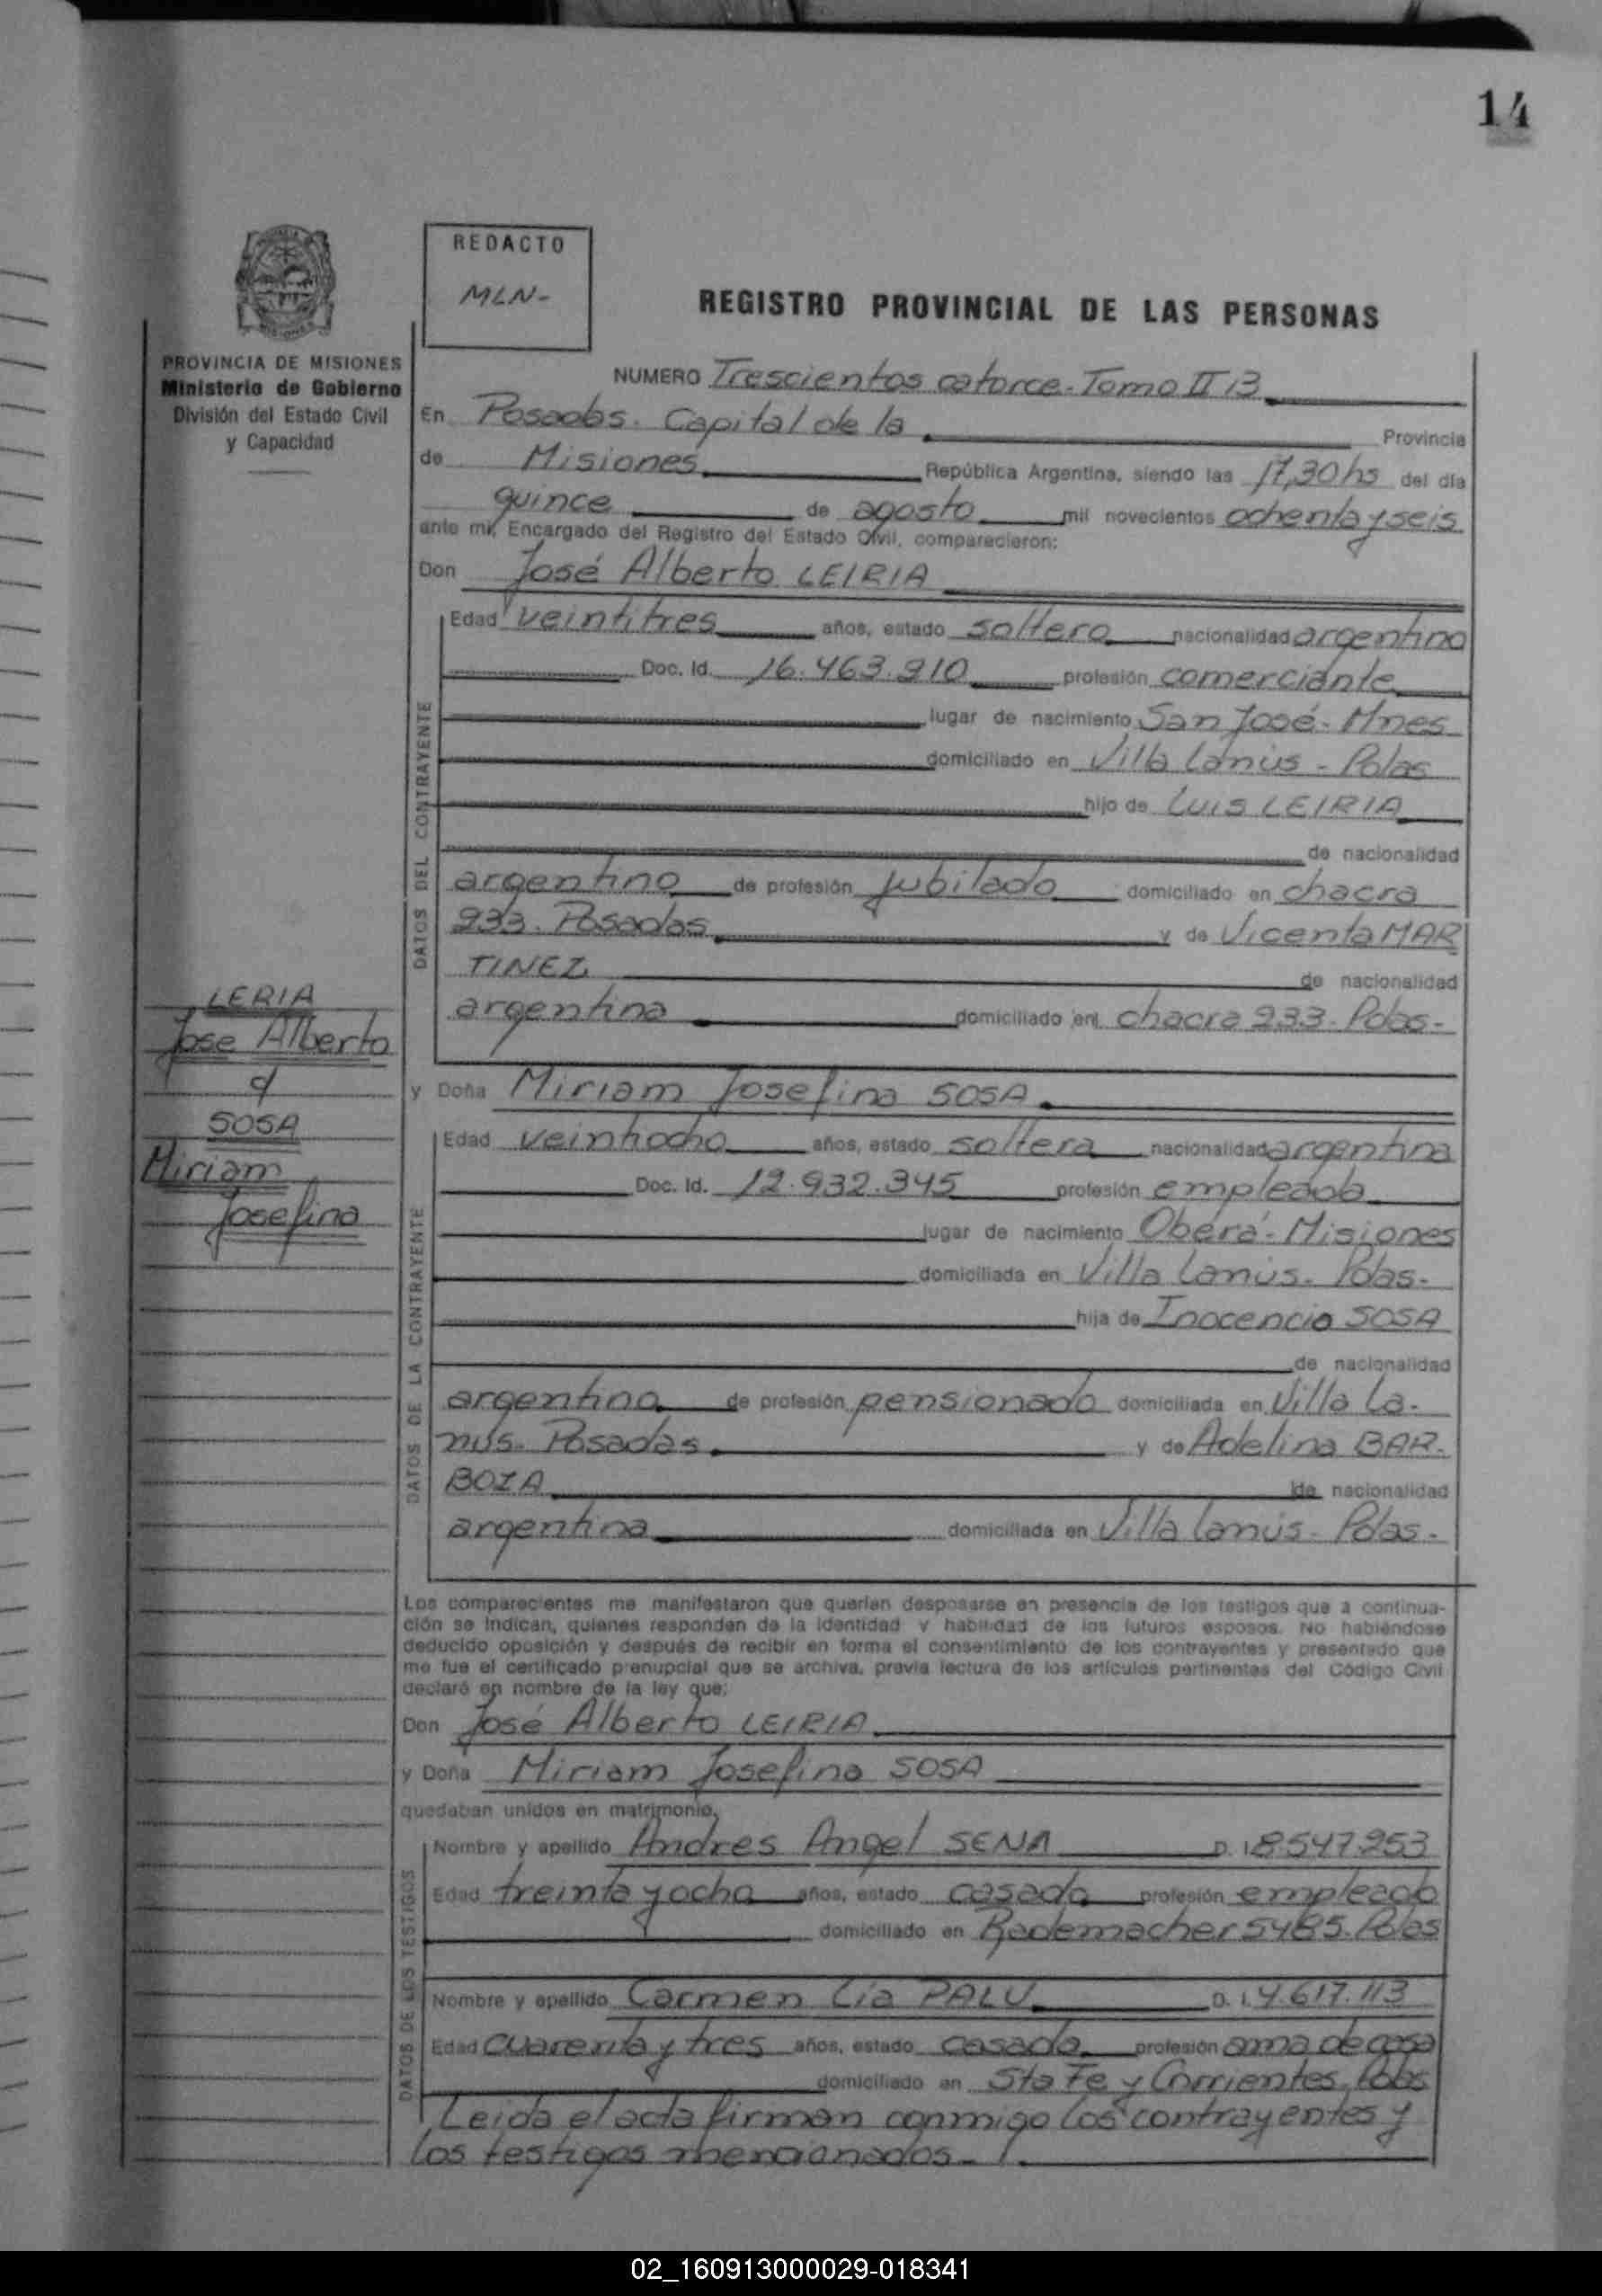 14
REDACTO
MLN-
REGISTRO PROVINCIAL DE LAS PERSONAS
PROVINCIA DE MISIONES
Ministerio de Gobierno
División del Estado Civil
y Capacidad
NUMERO Trescientos catorce- Tomo II B
En Posadas. Capital de la Provincia
de Misiones República Argentina, siendo las 17,30 hs del día
quince de agosto mil novecientos ochenta y seis
ante mí, Encargado del Registro del Estado Civil, comparecieron:
Don José Alberto LEIRIA
DATOS DEL CONTRAYENTE
Edad veintitres años, estado soltero nacionalidad argentino
Doc. Id. 16.463.910 profesión comerciante
lugar de nacimiento San José- Mnes
domiciliado en Villa Lanús - Pdas
hijo de Luis LEIRIA
de nacionalidad
argentino de profesión jubilado domiciliado en chacra
233. Posadas y de Vicenta MAR
TINEZ de nacionalidad
argentina domiciliado en chacra 233- Pdas-
LERIA
Jose Alberto
c/
SOSA
Miriam
Josefina
y Doña Miriam Josefina SOSA
DATOS DE LA CONTRAYENTE
Edad veintiocho años, estado soltera nacionalidad argentina
Doc. Id. 12.932.345 profesión empleada
lugar de nacimiento Oberá- Misiones
domiciliada en Villa Lanús- Pdas-
hija de Inocencio SOSA
de nacionalidad
argentino de profesión pensionado domiciliada en Villa La-
nús- Posadas y de Adelina BAR-
BOZA de nacionalidad
argentina domiciliada en Villa Lanús- Pdas-
Los comparecientes me manifestaron que querían desposarse en presencia de los testigos que a continua-
ción se indican, quienes responden de la identidad y habilidad de los futuros esposos. No habiéndose
deducido oposición y después de recibir en forma el consentimiento de los contrayentes y presentado que
me fue el certificado prenupcial que se archiva, previa lectura de los artículos pertinentes del Código Civil
declaré en nombre de la ley que:
Don José Alberto LEIRIA
y Doña Miriam Josefina SOSA
quedaban unidos en matrimonio.
DATOS DE LOS TESTIGOS
Nombre y apellido Andres Angel SENA D. I. 8.547.253
Edad treinta y ocho años, estado casado profesión empleado
domiciliado en Rademacher 5485. Pdas
Nombre y apellido Carmen Lia PALU D. I. 4.617.113
Edad cuarenta y tres años, estado casada profesión ama de casa
domiciliado en Sta Fe y Corrientes Pdas
Leida el acta firman conmigo los contrayentes y
los testigos mencionados-
02_160913000029-018341